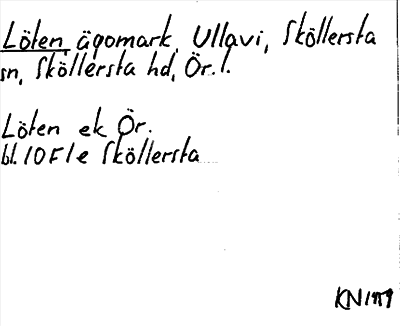 Löten, ägomark, Ullavi, Sköllersta
sn, Sköllersta hd, Ör. l.
Löten ek Ör.
bl. 10F1e Sköllersta
KN